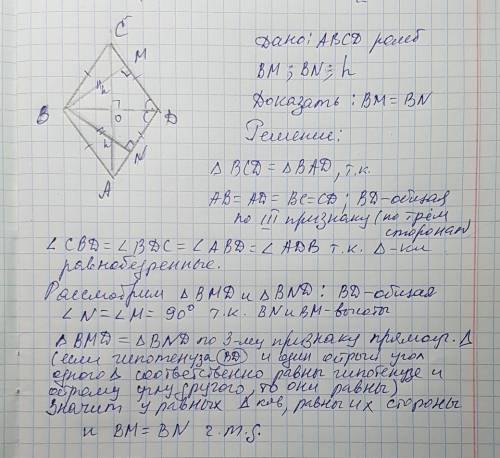 C
M
B
h
O
D
h
N
A
Дано: ABCD ромб
BM; BN; h
Доказать: BM = BN
Решение:
△ BCD = △ BAD, т.к.
AB = AD = BC = CD; BD - общая
по III признаку (по трём
сторонам
∠ CBD = ∠ BDC = ∠ ABD = ∠ ADB т.к. △-ки
равнобедренные.
Рассмотрим △ BMD и △ BND: BD - общая
∠ N = ∠ M = 90° т.к. BN и BM - высоты
△ BMD = △ BND по 3-му признаку прямоуг. △
(если гипотенуза (BD) и один острый угол
одного △ соответственно равны гипотенузе и
острому углу другого, то они равны)
Значит у равных △ ков, равны их стороны
и BM = BN ч.т.д.